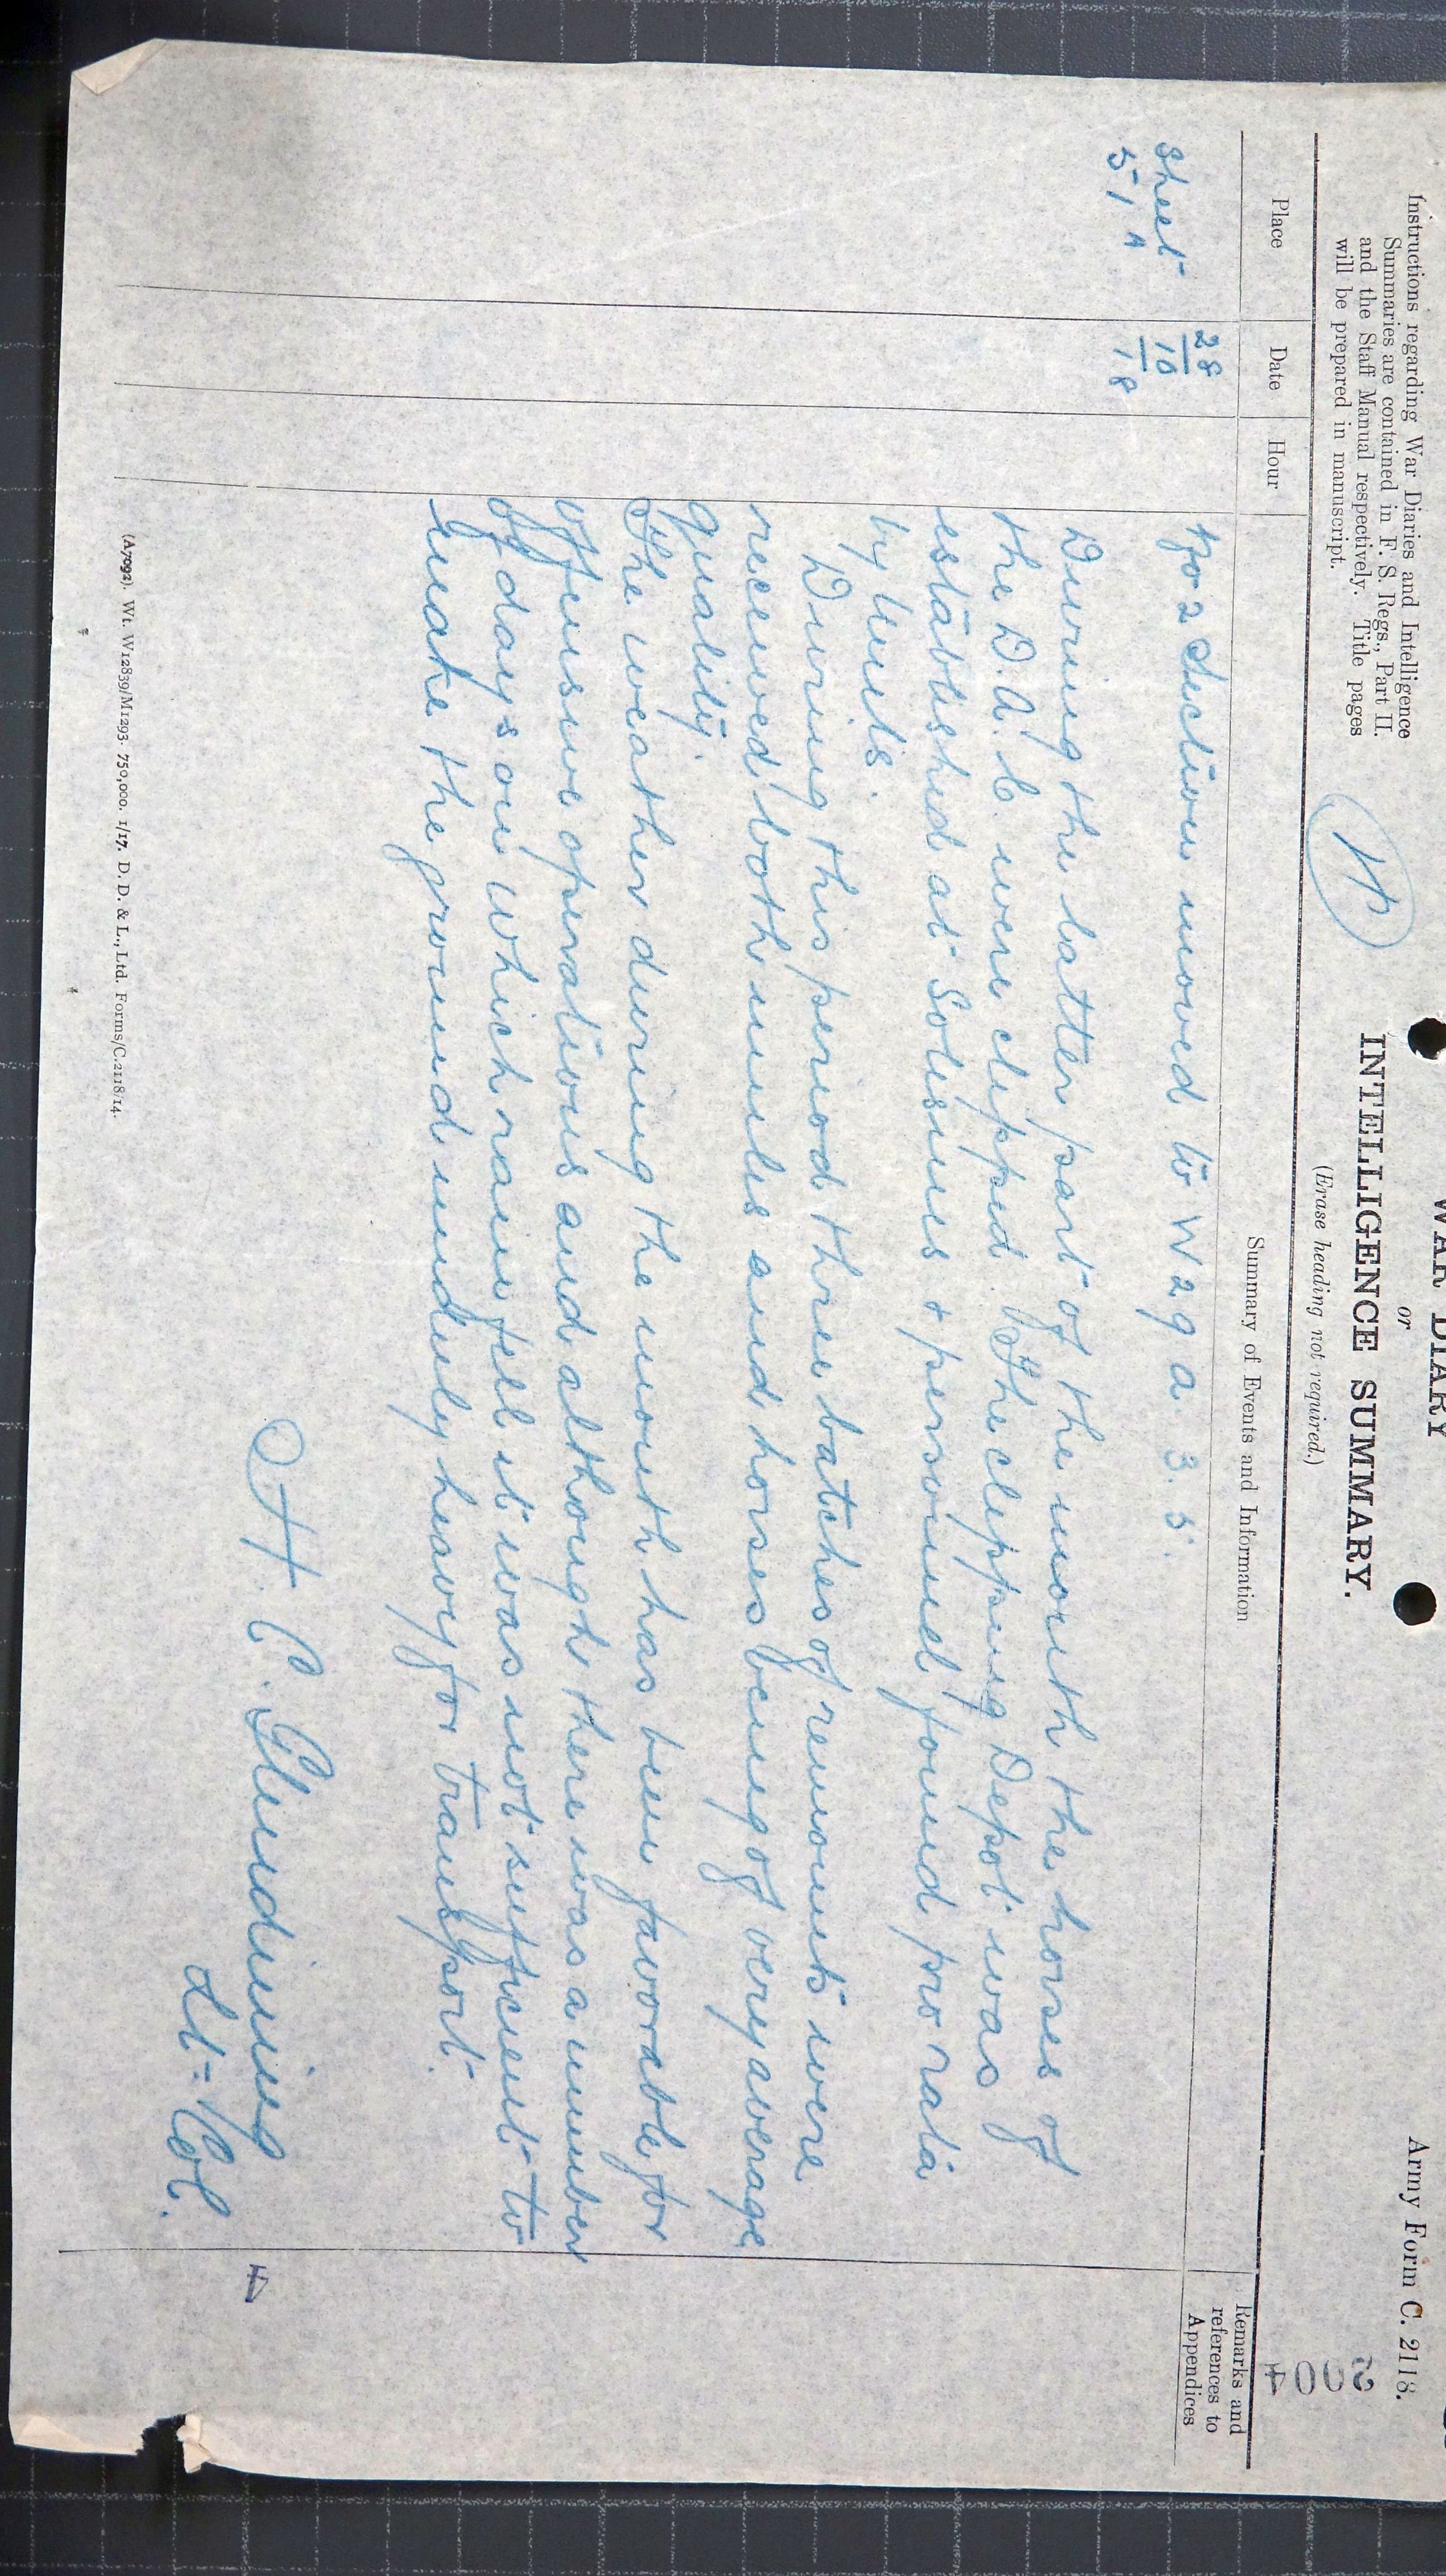 Army Form C. 2118.
WAR DIARY
or
INTELLIGENCE SUMMARY.
(Erase heading not required.)
Instructions regarding War Diaries and Intelligence
Summaries are contained in F. S. Regs., Part II.
and the Staff Manual respectively. Title pages
will be prepared in manuscript.
Place
Date
Hour
Summary of Events and Information
Remarks and
references to
Appendices
Sheet
51 A
28
10
18
No 2 Section moved to W 29 a. 3. 5.
During the latter part of the month the horses of
the D.A.C. were clipped. The clipping Depot was
established at Solesmes & personnel found pro rata
by Units.
During this period three batches of remounts were
received both mules and horses being of very average
quality.
The weather during the month has been favorable for
offensive operations and although there was a number
of days on which rain fell it was not sufficient to
make the ground unduly heavy for transport.
H. C. Glendining
Lt-Col.
(A7092). Wt. W12839/M1293. 750,000. 1/17. D. D. & L., Ltd. Forms/C.2118/14.